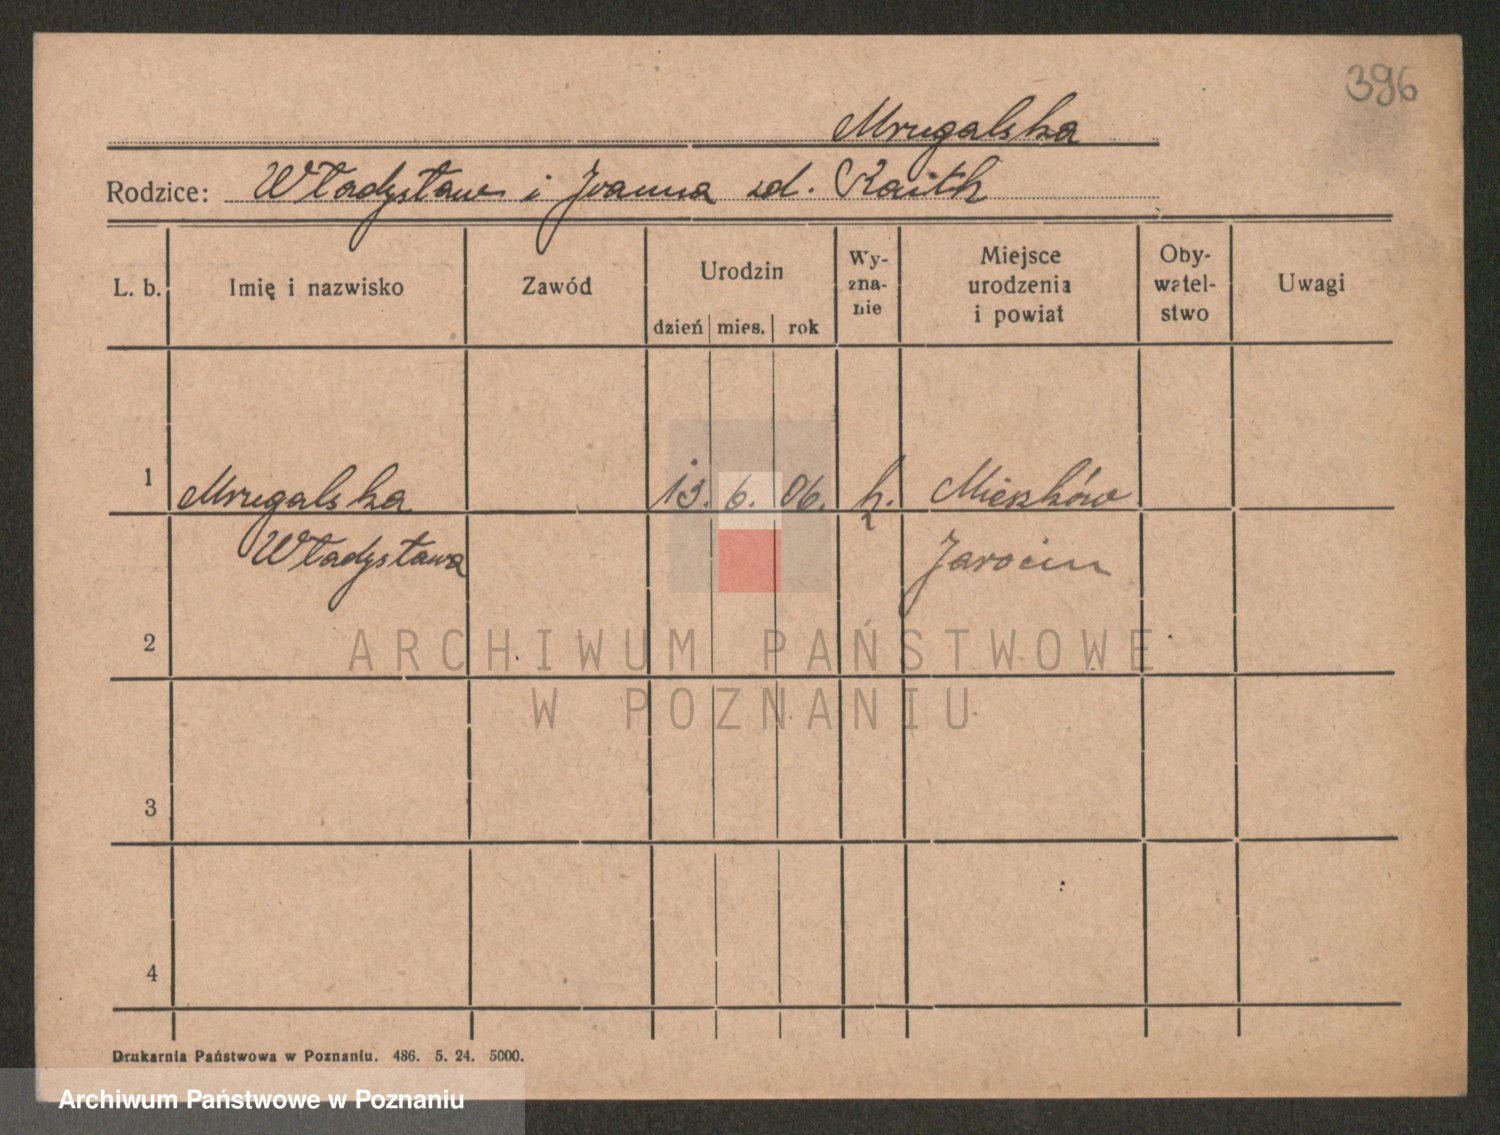 396
Mrugalska
Rodzice: Władysław i Joanna zd.
L. b. Imię i nazwisko Zawód Urodzin dzień mies. rok Wy-zna-nie Miejsce urodzenia i powiat Oby-watel-stwo Uwagi
1 Mrugalska 13. 6. 06. k. Mieszków
Władysława Jarocin
2
ARCHIWUM PAŃSTWOWE
W POZNANIU
3
4
Drukarnia Państwowa w Poznaniu. 486. 5. 24. 5000.
Archiwum Państwowe w Poznaniu